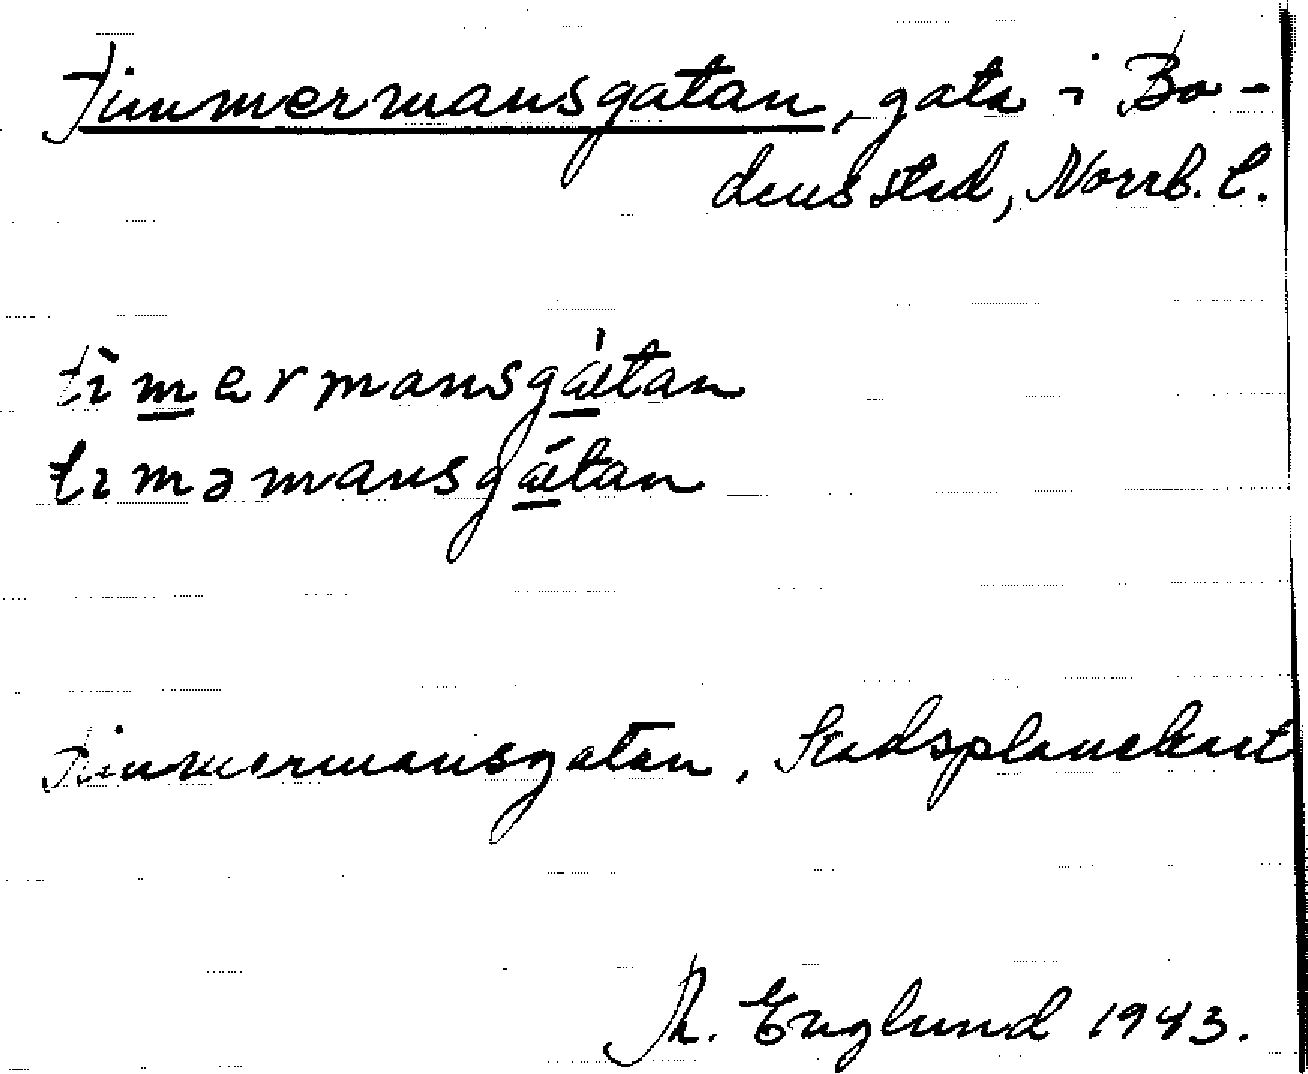 Timmermansgatan, gata i Bo-
dens stad, Norrb. l.
tìmermansgátan
timəmansgátan
Timmermansgatan, Stadsplanekart
Th. Englund 1943.